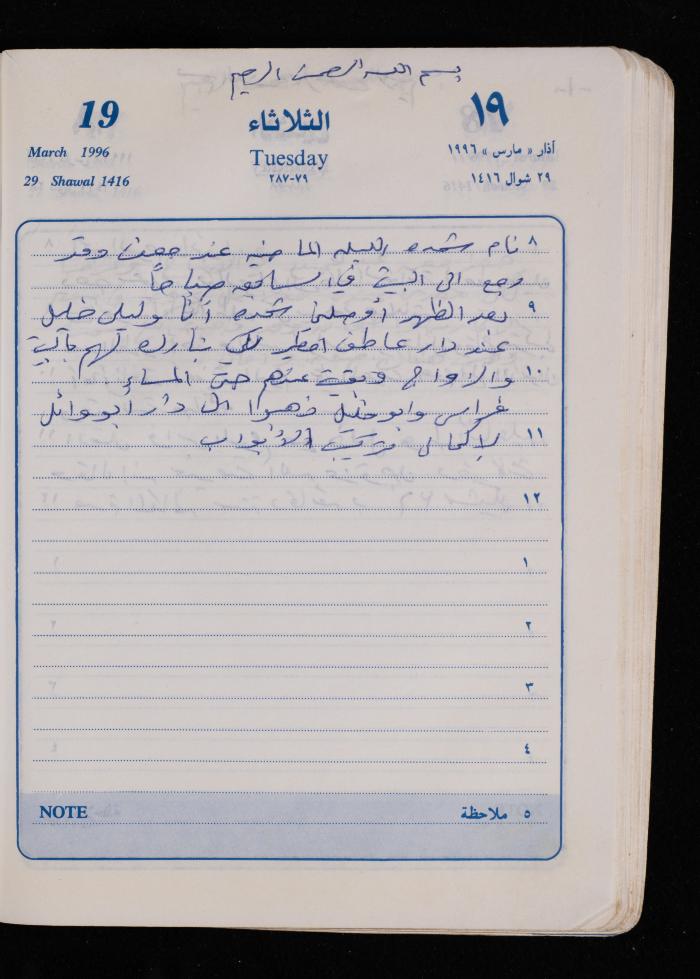 بسم الله الرحمن الرحيم
19
الثلاثاء
١٩
March 1996
Tuesday
آذار « مارس » ١٩٩٦
29 Shawal 1416
٧٩-٢٨٧
٢٩ شوال ١٤١٦
٨ نام شحده الليله الماضيه عند وقد
رجع الى البيت في السابعه صباحاً
٩ بعد الظهر أوصلني شحده أنا وليلى خليل
عند دار عاطف لكي نبارك لهم بالبيت
١٠ والزواج وبقيت عندهم حتى المساء
فراس وابو خليل ذهبوا الى دار أبو وائل
١١ لإكمال تركيب الأبواب
١٢
١
٢
٣
٤
NOTE
٥ ملاحظة